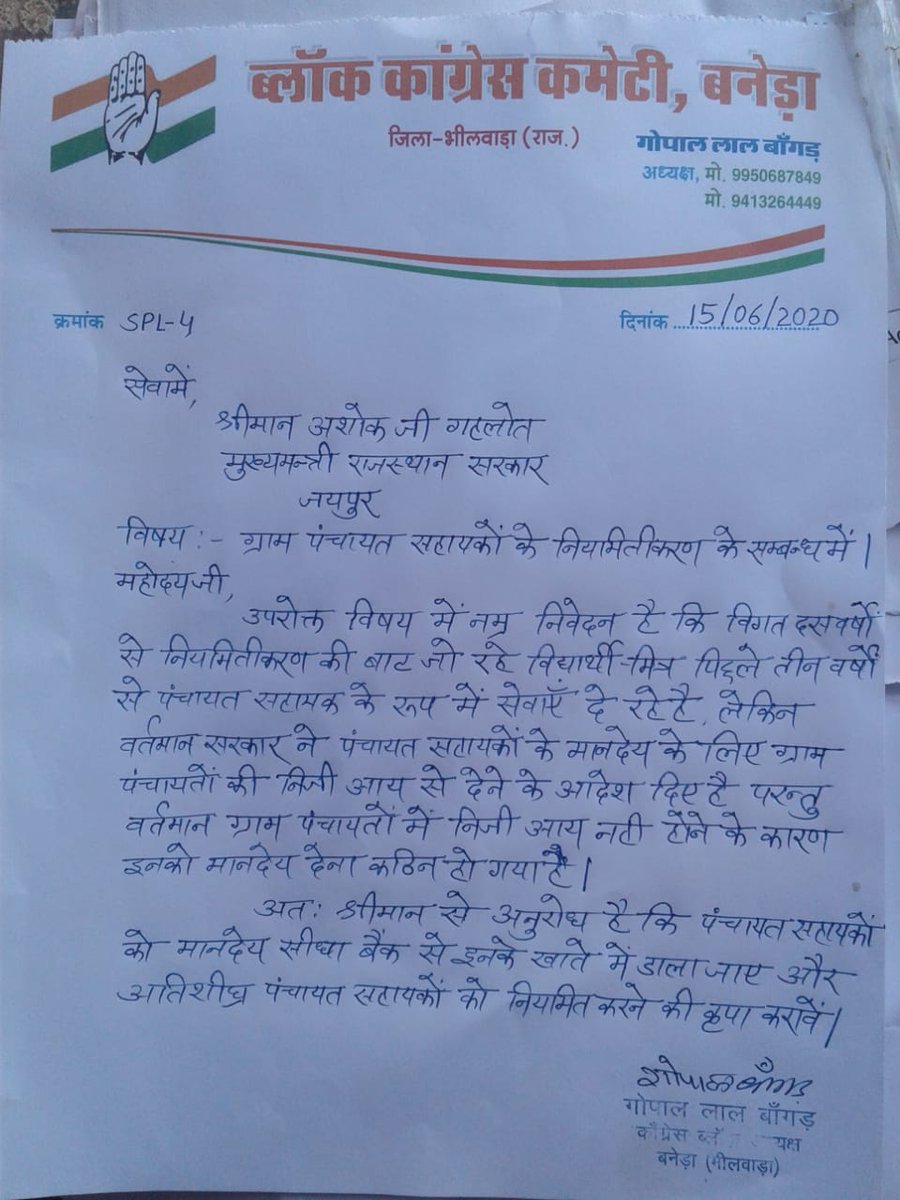 ब्लॉक कांग्रेस कमेटी, बनेड़ा
जिला-भीलवाड़ा (राज.)
गोपाल लाल बाँगड़
अध्यक्ष, मो. 9950687849
मो. 9413264449
क्रमांक SPL-4
दिनांक 15/06/2020
सेवामें,
श्रीमान अशोक जी गहलोत
मुख्यमन्त्री राजस्थान सरकार
जयपुर
विषय :- ग्राम पंचायत सहायकों के नियामितीकरण के सम्बन्ध में।
महोदयजी,
उपरोक्त विषय में नम्र निवेदन है कि विगत दस वर्षों
से नियमितीकरण की बाट जो रहे विद्यार्थी-मित्र पिछ्ले तीन वर्षों
से पंचायत सहायक के रूप में सेवाएँ दे रहे है, लेकिन
वर्तमान सरकार ने पंचायत सहायकों के मानदेय के लिए ग्राम
पंचायतों की निजी आय से देने के आदेश दिए है परन्तु
वर्तमान ग्राम पंचायतों में निजी आय नही होने के कारण
इनको मानदेय देना कठिन हो गया है।
अत: श्रीमान से अनुरोध है कि पंचायत सहायकों
को मानदेय सीधा बैंक से इनके खाते में डाला जाए और
अतिशीघ्र पंचायत सहायकों को नियमित करने की कृपा करावें।
गोपाल बाँगड़
गोपाल लाल बाँगड़
काँग्रेस
बनेड़ा (भीलवाड़ा)